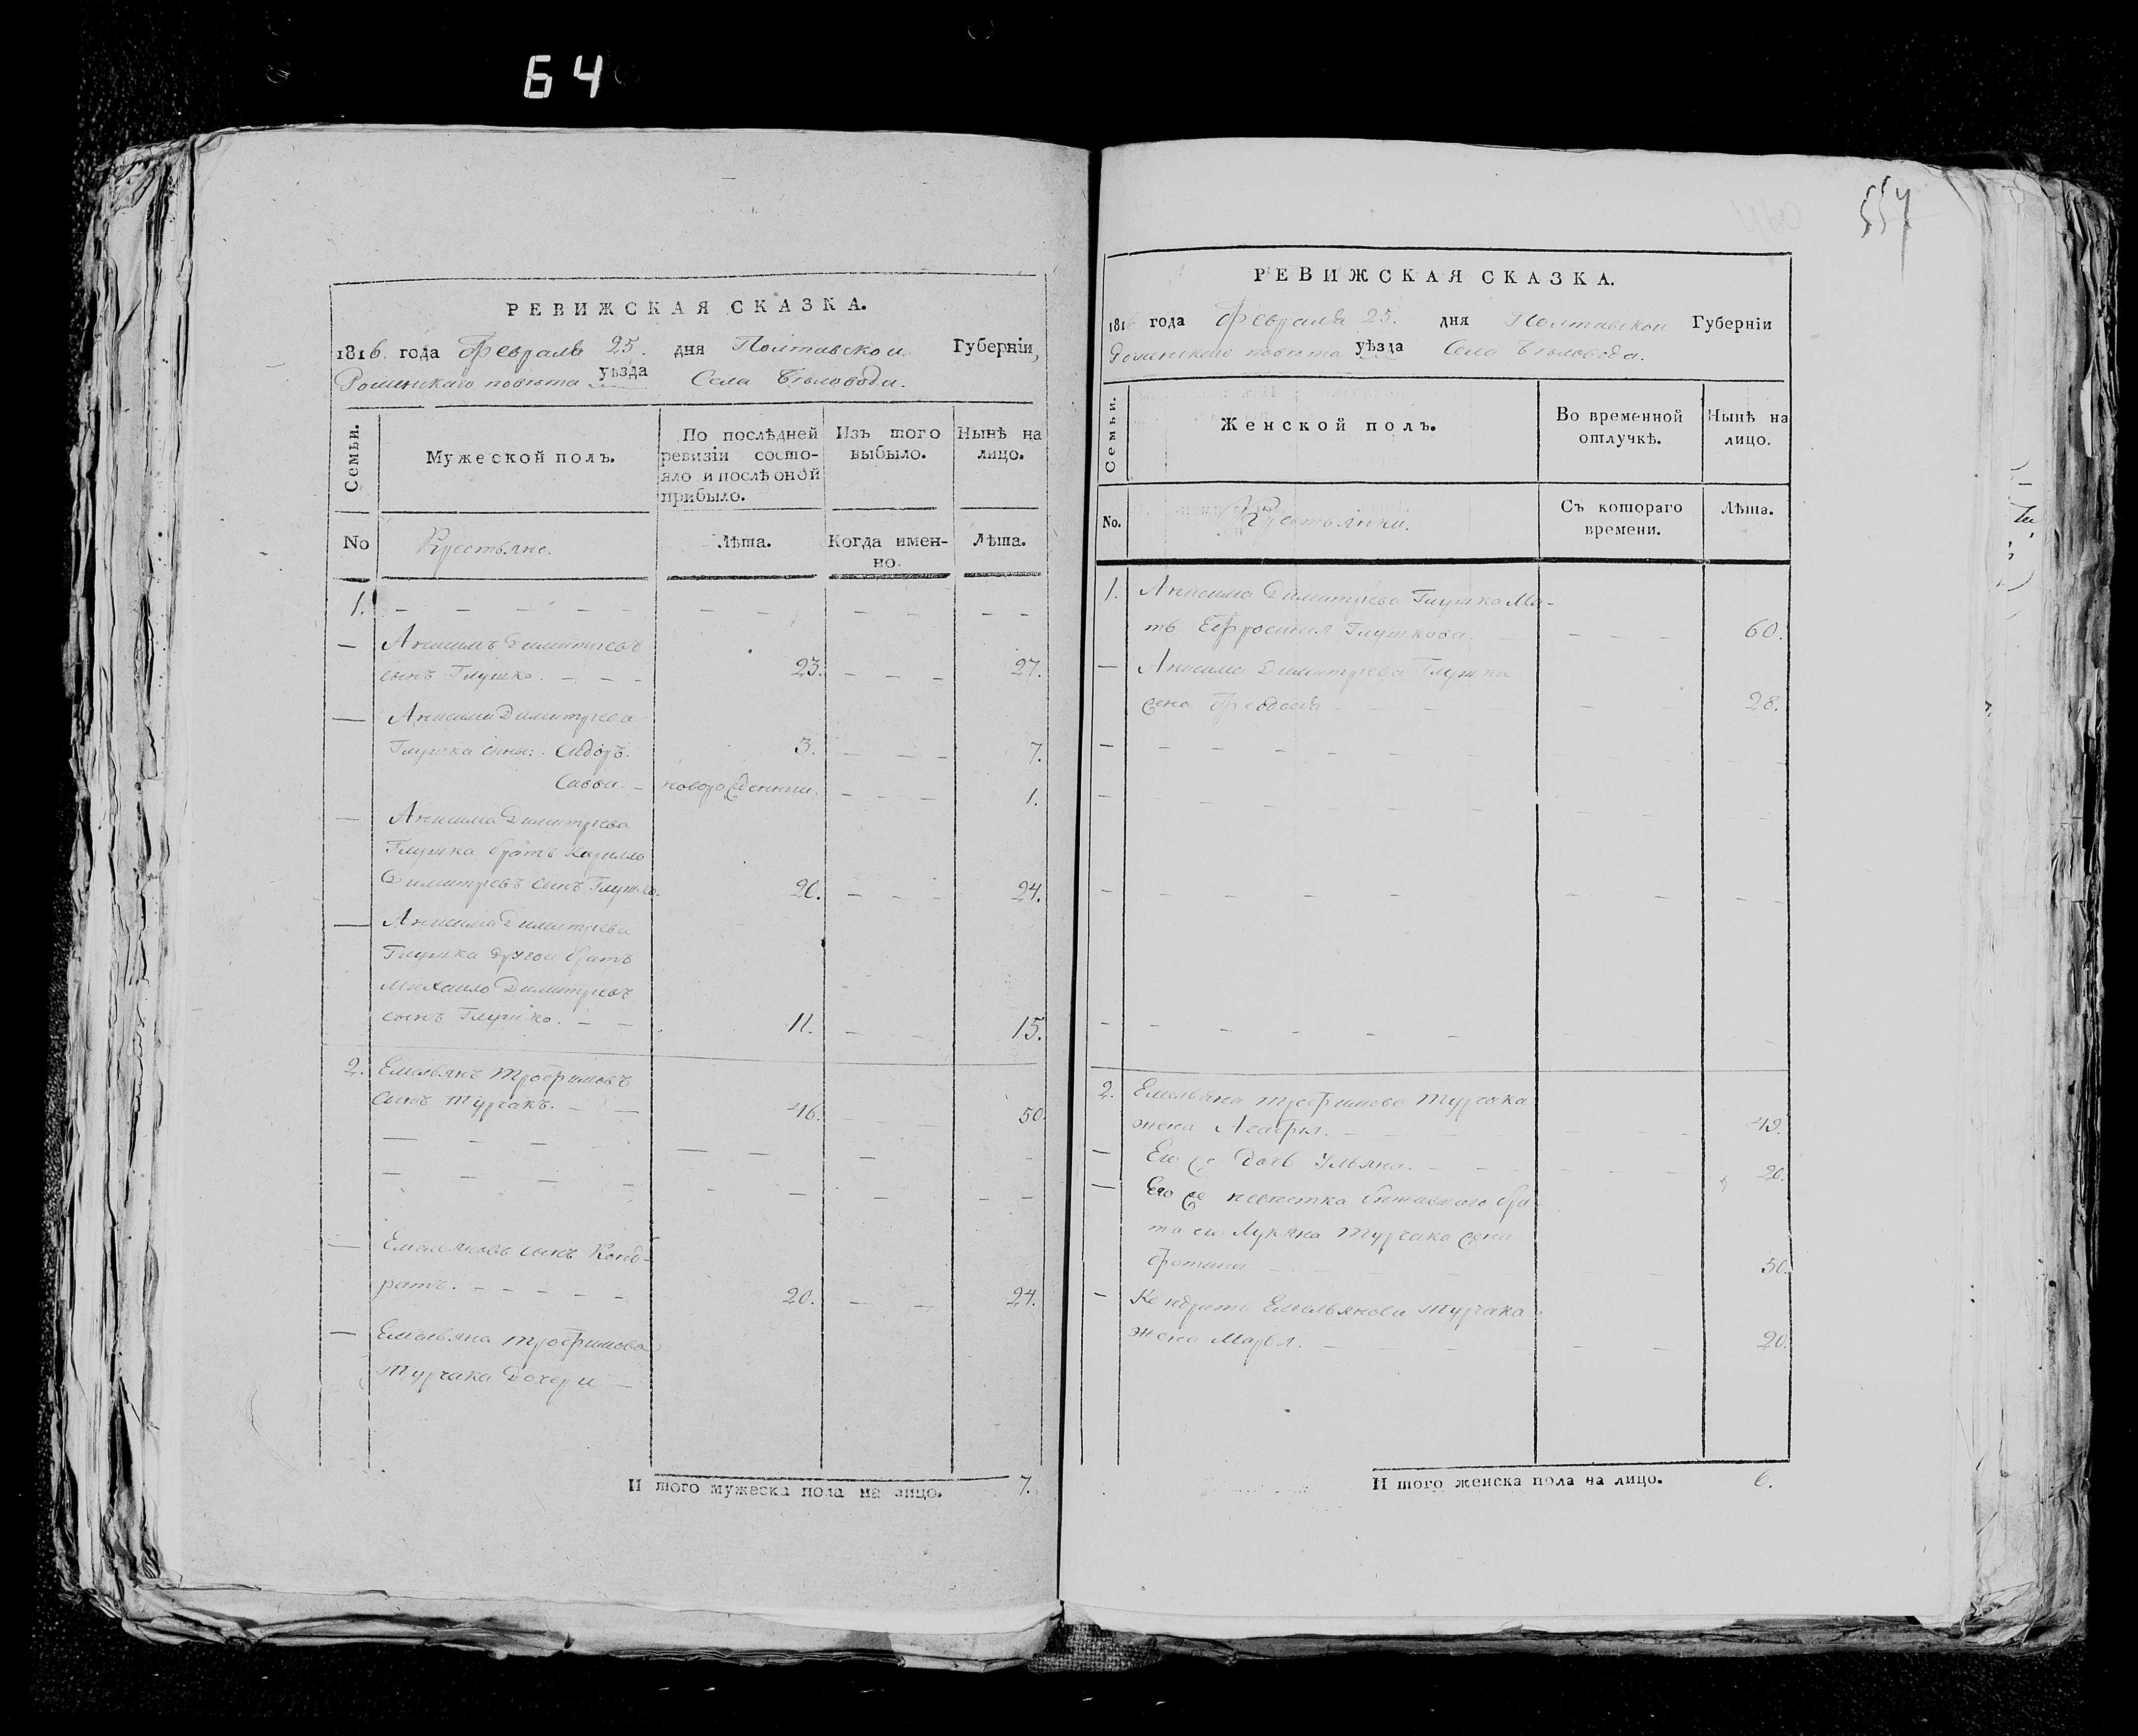 64
РЕВИЖСКАЯ СКАЗКА.
1816. года Февраля 25. дня Полтавской Губерніи,
Роменскаго повѣта уѣзда Села Бѣловода.
Семьи.
Мужеской полъ.
По послѣдней ревизіи состояло и послѣ оной прибыло.
Изъ того выбыло.
Нынѣ на лицо.
No
Крестьяне.
Лѣта.
Когда именно.
Лѣта.
1. – – – – – – – – – – –
— Анисимъ Димитріевъ
сынъ Глушко. – – – 23. – – – 27.
— Анисима Димитріева
Глушка сины: Сидоръ. 3. – – – 7.
Савва. – новорожденный. – – – 1.
— Анисима Димитріева
Глушка братъ Кирилло
Димитріевъ синъ Глушко. 20. – – – 24.
— Анисима Димитріева
Глушка другой братъ
Михаило Димитріевъ
сынъ Глушко. – – 11. – – 15.
2. Емельянъ Трофимовъ
Сынъ Турчакъ. – – 46. – – – 50.
— – – — – – –
– – – – – – – – –
— Емельяновъ сынъ Конд-
ратъ. – – – – – 20. – – 24.
— Емельяна Трофимова
Турчака Дочери —
И того мужеска пола на лицо. 7.
557
РЕВИЖСКАЯ СКАЗКА.
1816 года Февраля 25. дня Полтавской Губерніи
Роменскаго повѣта уѣзда Села Бѣловода.
Семьи.
Женской полъ.
Во временной отлучкѣ.
Нынѣ на лицо.
No.
Крестьянки.
Съ котораго времени.
Лѣта.
1. Анисима Димитріева Глушка Ма-
ть Ефросинія Глушкова. – – – – 60.
— Анисима Димитріева Глушка
жена Феодосія. – – – – – 28.
– – – – – – – – – –
– – – – – – – – – –
– – – – – – – – – –
– – – – – – – –
2. Емельяна Трофимова Турчака
жена Агафія. – – – – – 49.
— Его же Дочь Ульяна. – – – – – 20.
— Его же невѣстка бѣжавшаго бра-
та его Лукяна Турчака жена
Фотина – – – – – 50.
– Кондрата Емельянова Турчака
жена Марѳа. – – – – – 20.
И того женска пола на лицо. 6.